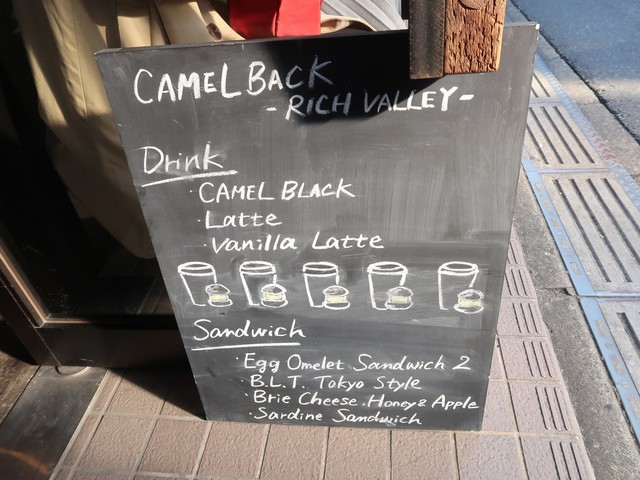 CAMELBACK
-RICH VALLEY-
Drink
· CAMEL BLACK
· Latte
· Vanilla Latte
Sandwich
· Egg Omelet Sandwich 2
· B.L.T. Tokyo Style
· Brie Cheese.Honey & Apple
· Sardine Sandwich